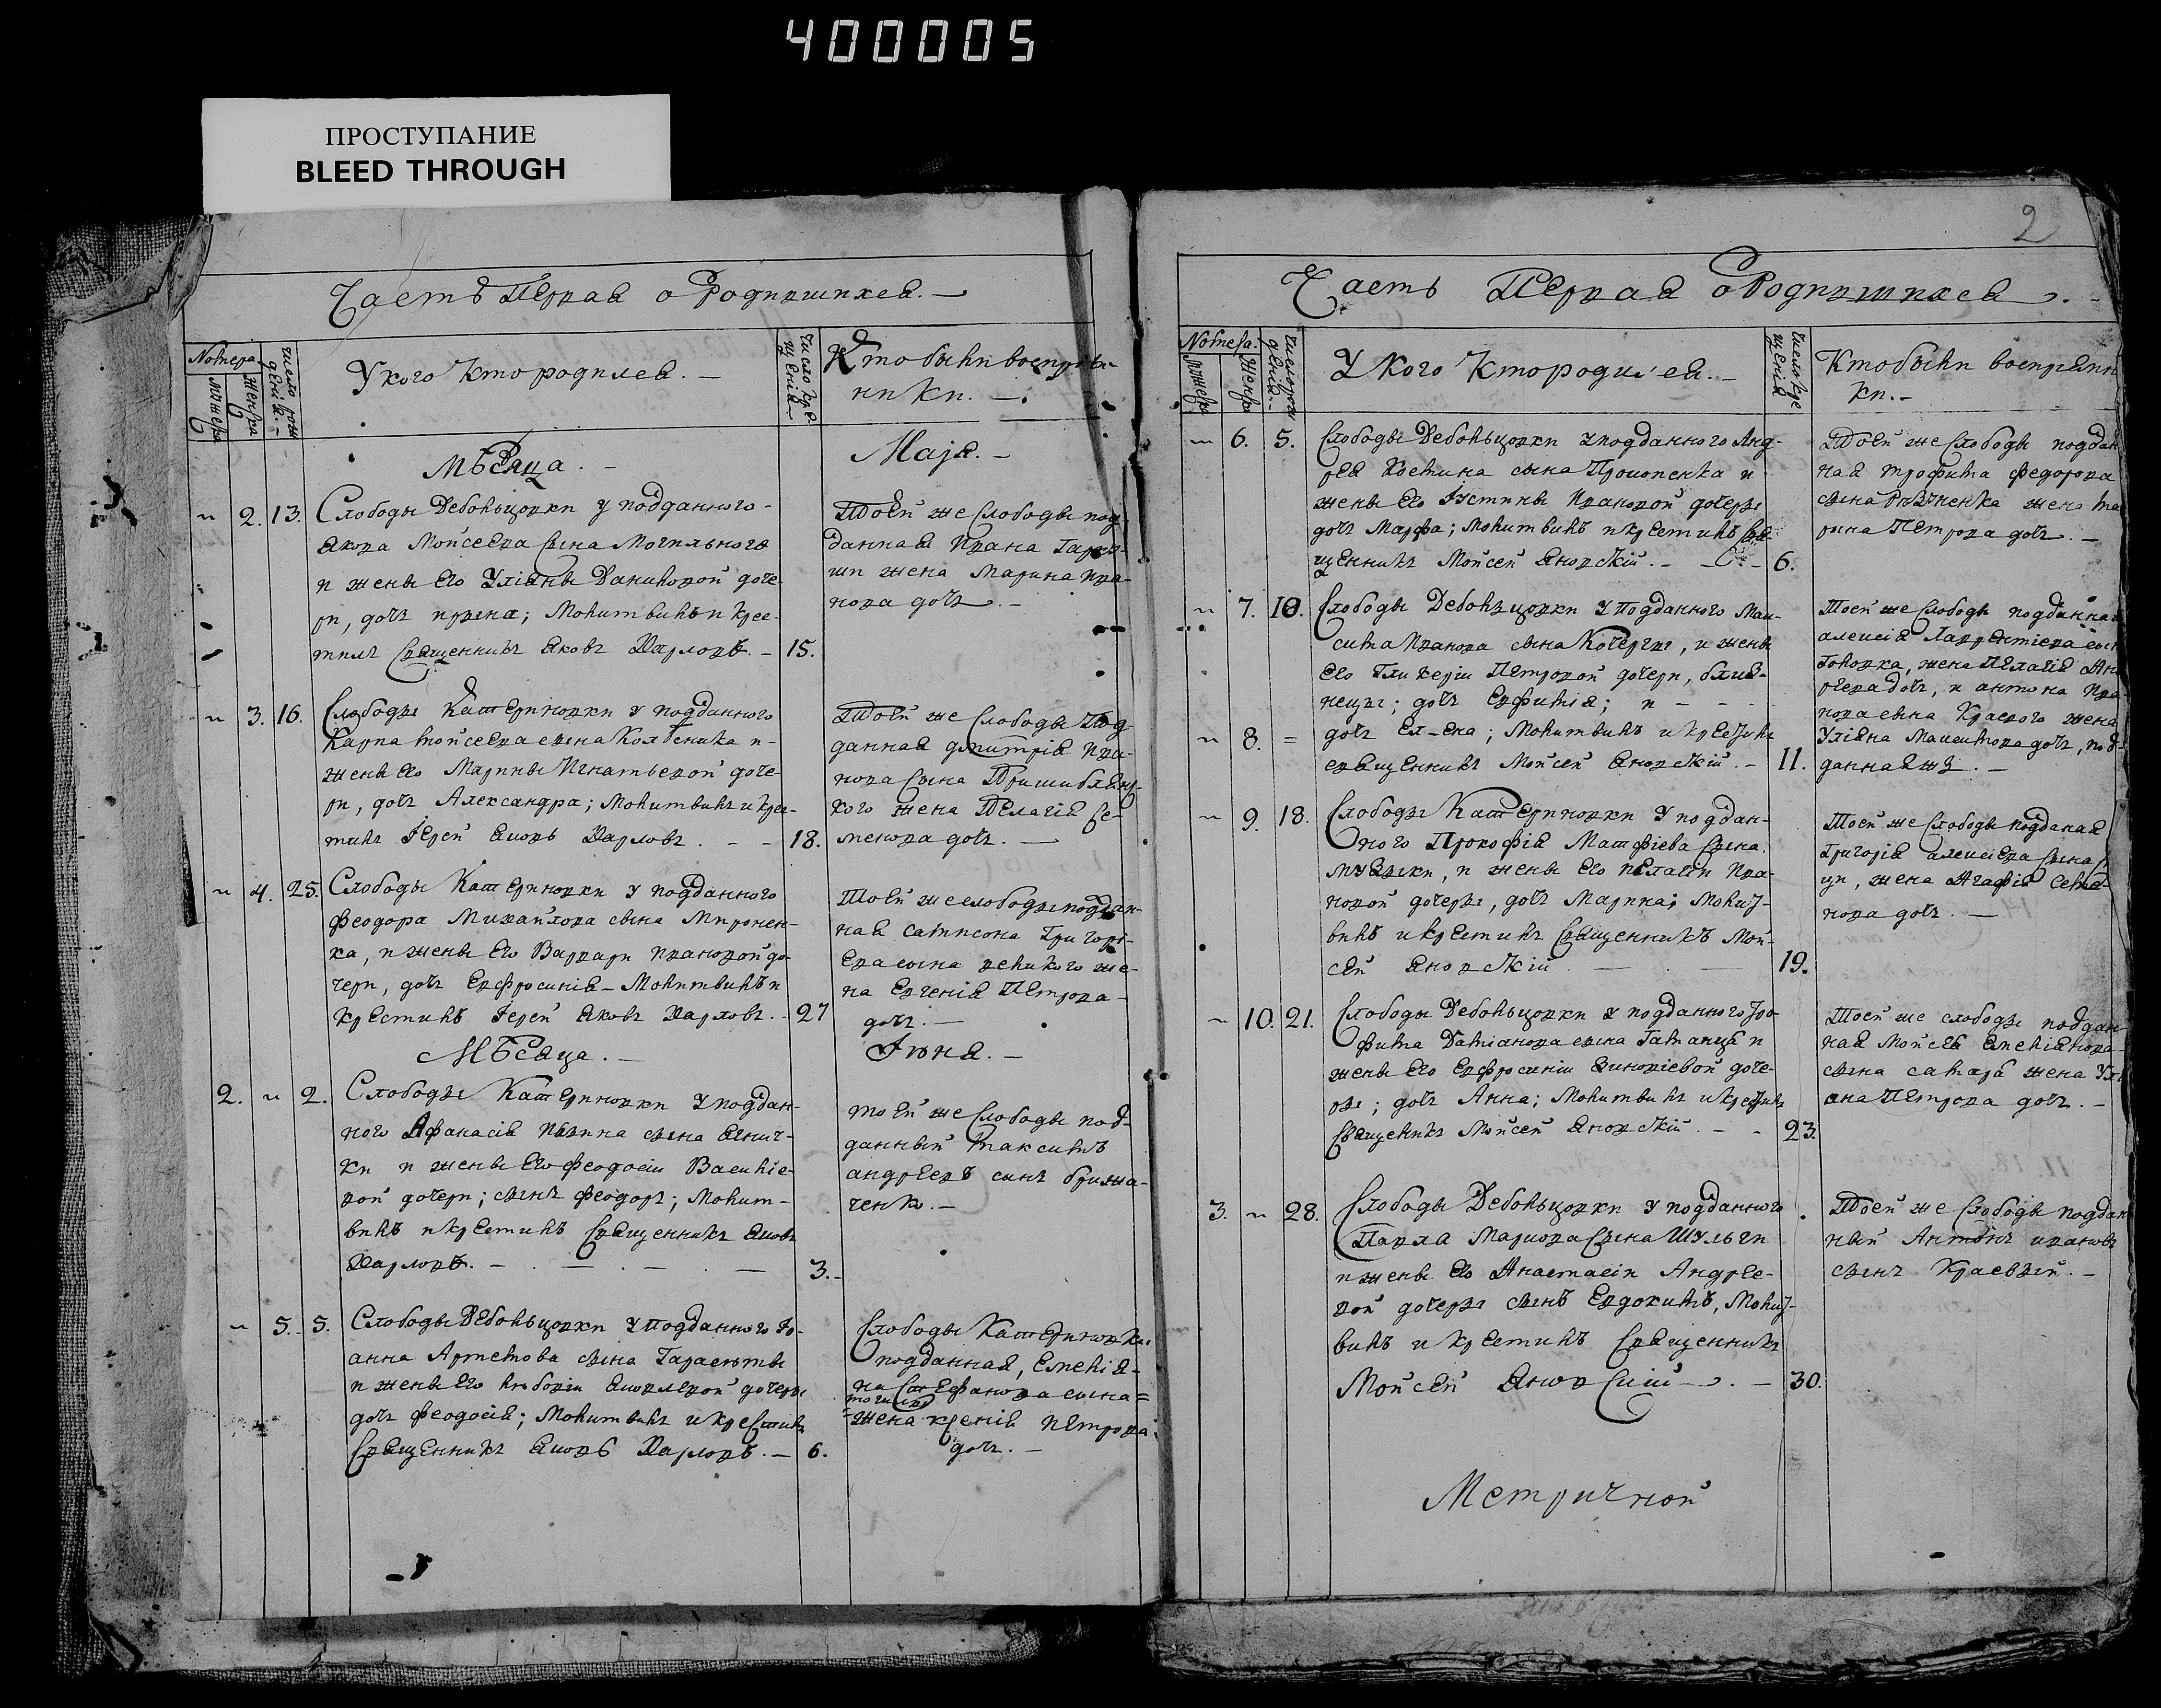 400005
ПРОСТУПАНИЕ
BLEED THROUGH
Часть Первая о Родившихся. —
Nомера
мужеска
женска
число рож
денія. —
У кого Кто родился. —
число кре
щенія
Кто были воспріем
ники. —
Мѣсяца. —
Маія. —
~ 2. 13. Слободы Дебольцовки у подданного
Якова Мойсеева сына Могильного
и жены его Уліяны Даниловой доче-
ри, дочъ Ирина; Молитвилъ и крес-
тилъ Священникъ Яковъ Харловъ. — 15.
Тоей же Слободы под-
данная Ивана
жена Марина Ива-
нова дочъ. —
~ 3. 16. Слободы Катериновки у подданного
Карпа Мойсеева сына Колѣсника и
жены его Марины Игнатьевой доче-
ри, дочъ Александра; Молитвилъ и крес-
тилъ Іерей Яковъ Харловъ. — — 18.
Тоей же Слободы Под-
данная Дмитрія Ива-
нова сына
кого жена Пелагія Се-
менова дочъ. —
~ 4. 25. Слободы Катериновки у подданного
Феодора Михайлова сына Миронен-
ка, и жены его Варвары Ивановой до-
чери, дочъ Евфросинія — Молитвилъ и
крестилъ Іерей Яковъ Харловъ. — 27
Тоей же слободы поддан-
ная Самсона Григорі-
ева сына великого же-
на Евгенія Петрова
дочъ. —
Мѣсяца. —
Іюня. —
2. ~ 2. Слободы Катериновки у поддан-
ного Афанасія сына
и жены его Феодосіи Василіе-
вой дочери; сынъ Феодоръ; Молит-
вилъ и крестилъ Священникъ Яковъ
Харловъ. — — — 3. —
тоей же Слободы под-
данный Максимъ
Андреевъ синъ
~ 5. 5. Слободы Дебольцовки у подданного Іо-
анна Артемова сына
и жены его Любови Яковлевой дочеры
дочъ Феодосія; Молитвилъ и крестилъ
Священникъ Яковъ Харловъ. — 6.
Слободы Катериновки
подданная, Емелія-
на Стефанова сына =
жена Ксенія Петрова
дочъ. —
2
Часть Первая о Родившихся. —
Nомера.
мужеска
женска
число рож
денія. —
У Кого Кто родился. —
число кре
щенія
Кто были воспріемни
ки. —
~ 6. 5. Слободы Дебольцовки у подданного Анд-
рея сына Прокопенка и
жены его Іустины Ивановой дочеры
дочъ Марфа; Молитвилъ и крестилъ Свя-
щенникъ Мойсей Яновскій. — — 6.
Тоей же Слободы поддан
ная Трофима Федорова
сына жена Ма
рина Петрова дочъ. —
~ 7. 10. Слободы Дебольцовки у Подданного Мак-
сима Иванова сына Кочерги, и жены
его Гликеріи Петровой дочери, близ-
нецы; дочъ Евфимія; и — —
~ 8. = дочъ Елена; Молитвилъ и крестилъ
священникъ Мойсей Яновскій. — 11.
Тоей же Слободы подданная
Алексія Лаврентіева сына
жена Пелагія Ан
реева дочъ, и Антона Ива
нова сына Красного жена
Уліяна Максимова дочъ, под-
данная жъ. —
~ 9. 18. Слободы Катериновки У поддан-
ного Прокофія Матфіева сына
и жены его Пелагіи Ива-
новой дочеры, дочъ Марина; Молит-
вилъ и крестилъ Священникъ Мой-
сей Яновскій — — 19.
Тоей же Слободы подданая
Григорія Алексіева сына
жена Агафія Семе-
нова дочъ. —
~ 10. 21. Слободы Дебольцовки у подданного Тро-
фима Даміанова сына и
жены его Евфросиніи Зиновіевой доче-
ры; дочъ Анна; Молитвилъ и крестилъ
Священникъ Мойсей Яновскій. — — 23.
Тоей же слободы поддан-
ная Мойсея Емеліянова
сына жена Ули
яна Петрова дочъ. —
3. ~ 28. Слободы Дебольцовки У подданного
Павла Маркова Сына Шульги
и жены его Анастасіи Андрее-
вой дочеры сынъ Евдокимъ, Молит-
вилъ и крестилъ Священникъ
Мойсей Яновскій —. — 30.
Тоей же Слободы поддан
ный Антонъ Ивановъ
сынъ Красный. —
Метричной